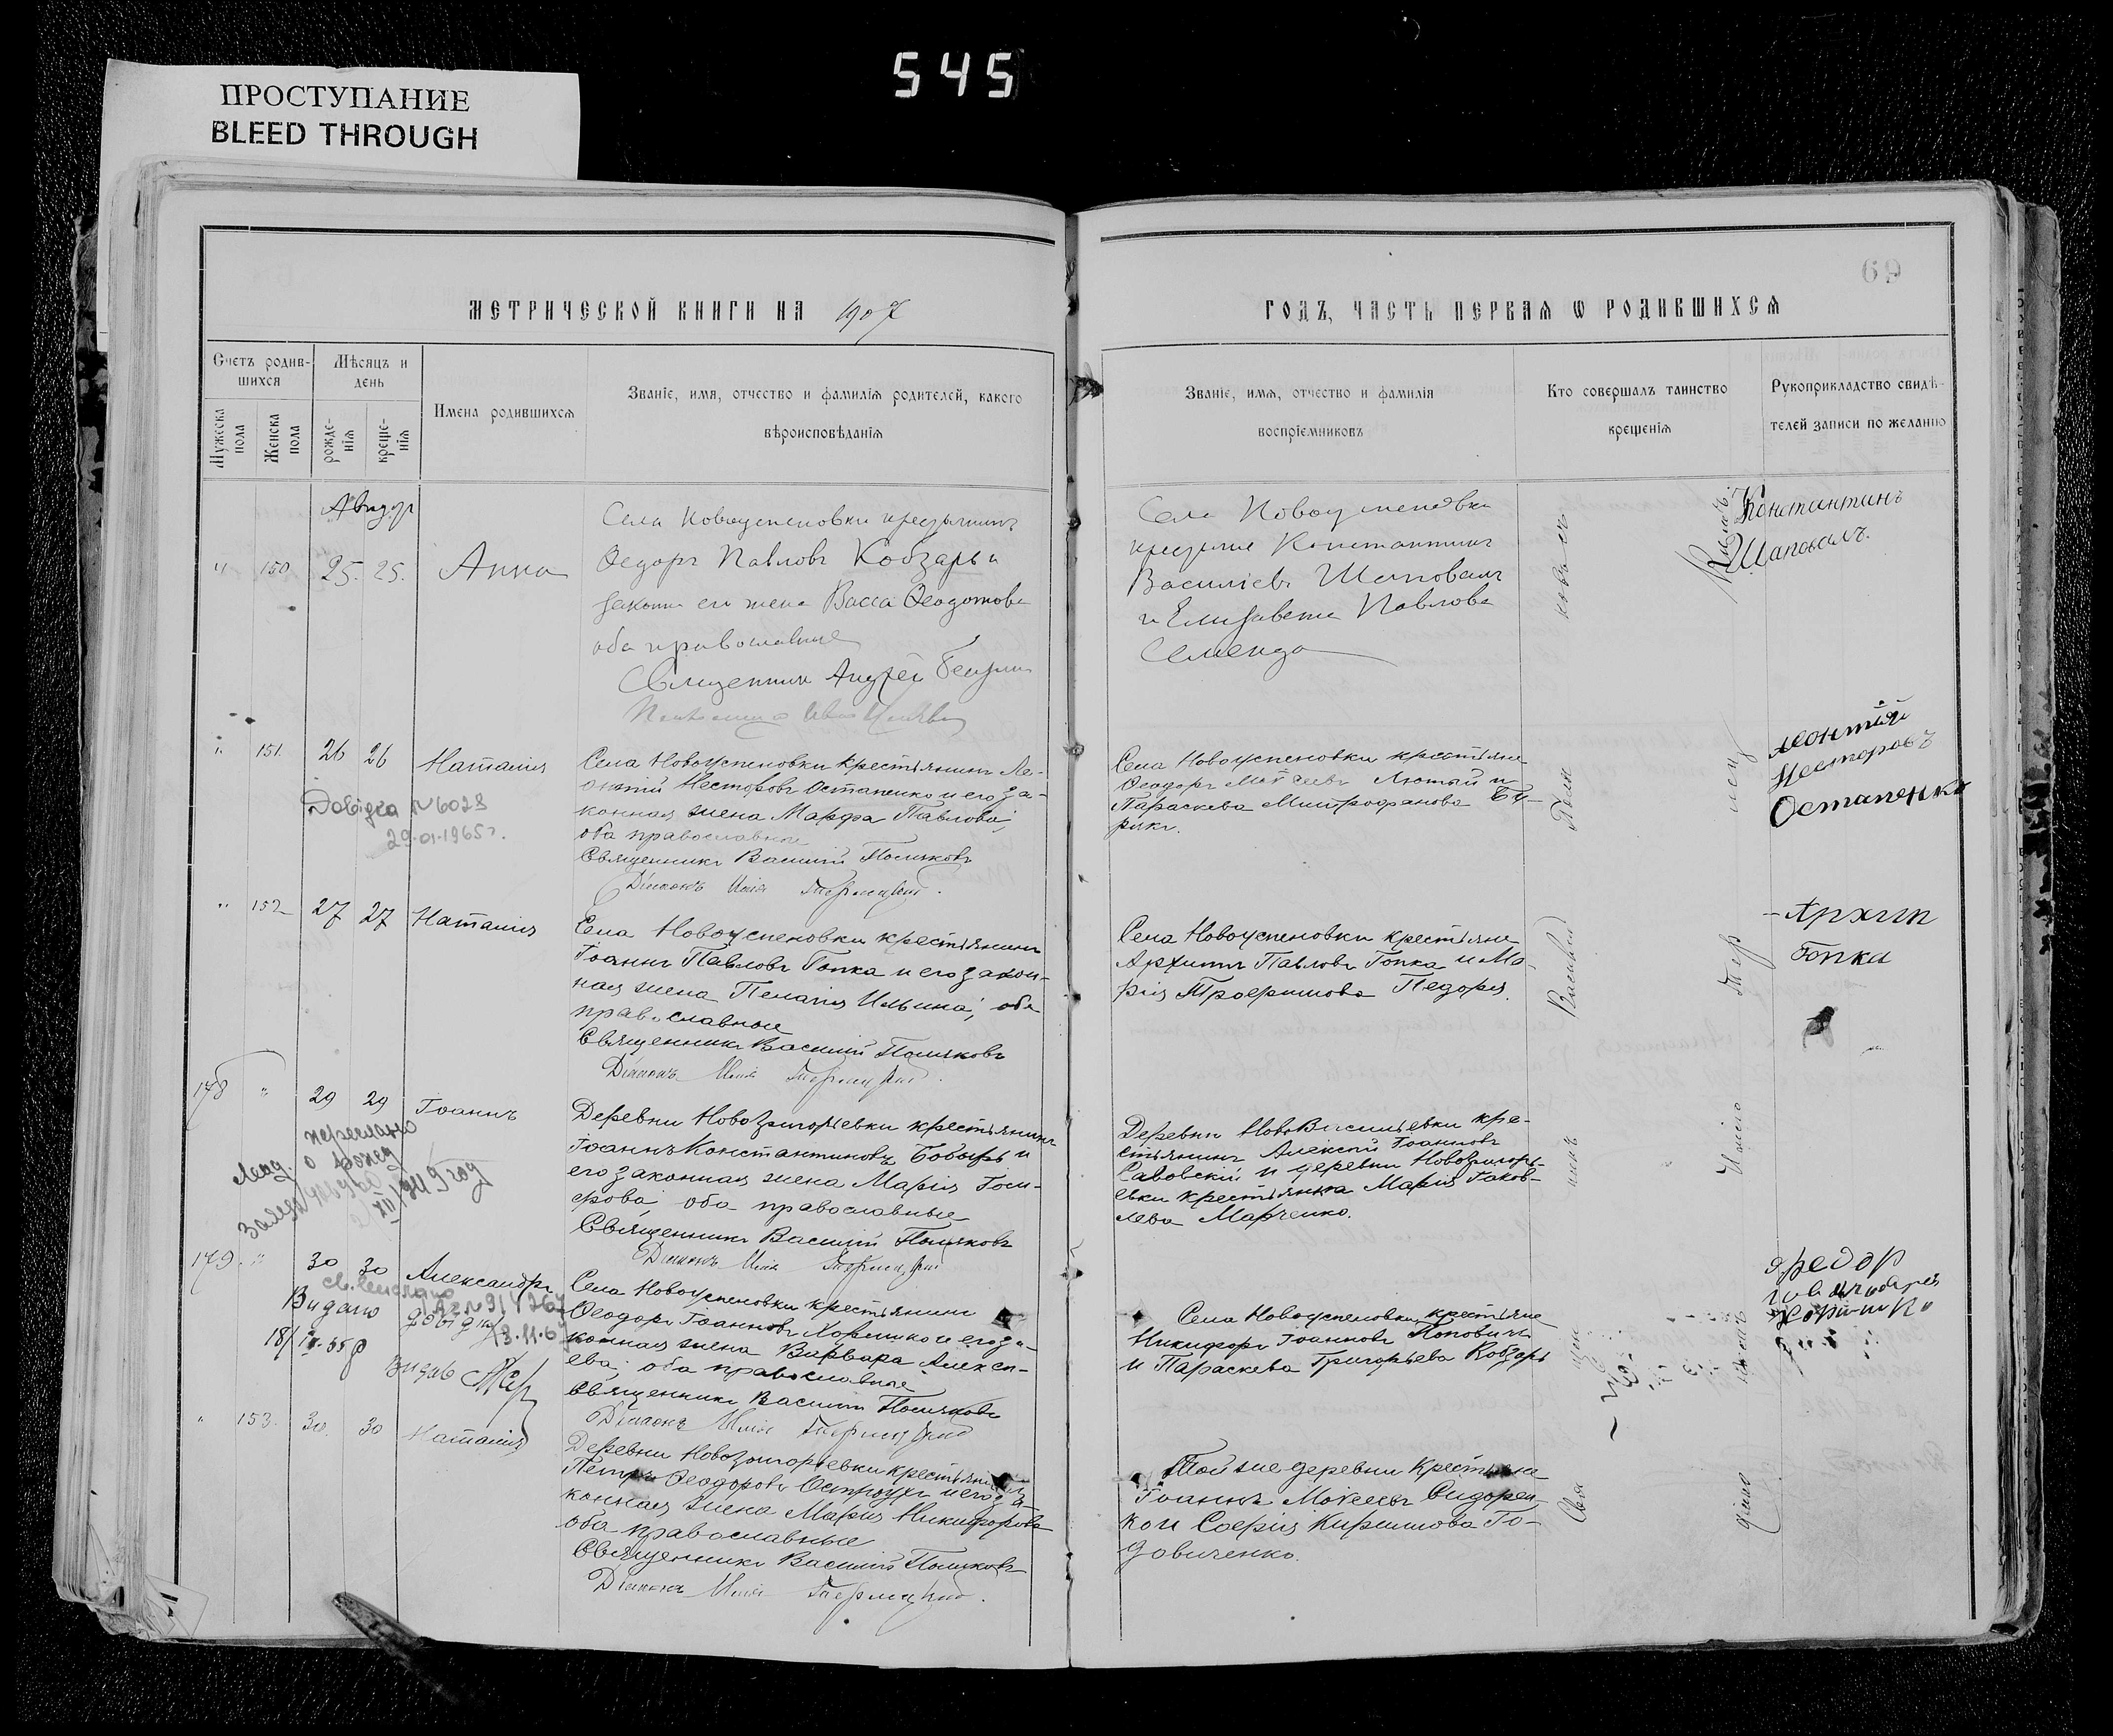 545
ПРОСТУПАНИЕ
BLEED THROUGH
69
МЕТРИЧЕСКОЙ КНИГИ НА 1907
ГОДЪ, ЧАСТЬ ПЕРВАЯ Ѡ РОДИВШИХСЯ
Счетъ родив-
шихся
Мужеска
пола
Женска
пола
Мѣсяцъ и
день
рожде-
нія
креще-
нія
Имена родившихся
Званіе, имя, отчество и фамилія родителей, какого
вѣроисповѣданія
Званіе, имя, отчество и фамилія
воспріемниковъ
Кто совершалъ таинство
крещенія
Рукоприкладство свидѣ-
телей записи по желанію
" 150 25. 25. Анна
Села Новоуспеновки крестьянинъ
Ѳедоръ Павловъ Кобзарь и
законн его жена Васса Ѳеодотова
оба православные
Священникъ Андрей
Села Новоуспеновки
крестьяне Константинъ
Василіевъ Шаповалъ
и Елизавета Павлова
Семенда
Константинъ
Шаповалъ.
" 151. 26 26 Наталія
Довідка №6028
29.01.1965г.
Села Новоуспеновки крестьянинъ Ле-
онтій Несторовъ Остапенко и его за-
конная жена Марфа Павлова,
оба православные
Священникъ Василій Поляковъ
Діаконъ Илія
Села Новоуспеновки крестьяне
Ѳеодоръ Моѵсеевъ Лютый и
Параскева Митрофанова Бу-
рякъ.
Леонтій
Несторовъ
Остапенко
" 152 27 27 Наталія
Села Новоуспеновки крестьянинъ
Іоаннъ Павловъ Гопка и его закон-
ная жена Пелагія Ильина; оба
православные
Священникъ Василій Поляковъ
Діаконъ Илія
Села Новоуспеновки крестьяне
Архиппъ Павловъ Гопка и Ма
рія Трофимова Педоря.
Архип
Гопка
178 " 29 29 Іоаннъ
переслано
о рожд
XII/1949 год
Деревни Новогригорьевки крестьянинъ
Іоаннъ Константиновъ Бобырь и
его законная жена Марія Іоси-
фова; оба православные
Священникъ Василій Поляковъ
Діаконъ Илія
Деревни НовоВасильевки кре-
стьянинъ Алексій Іоанновъ
Савовскій и деревни Новогригорь-
евки крестьянка Марія Іаков-
лева Марченко.
179. " 30 30 Александръ
Видано
довідку
13.11.67
18/IX-55р
Села Новоуспеновки крестьянинъ
Ѳеодоръ Іоанновъ Хоришко и его за-
конная жена Варвара Алексі-
ева; оба православные
Священникъ Василій Поляковъ
Діаконъ Илія
Села Новоуспеновки крестьяне
Никифоръ Іоанновъ Поповичъ
и Параскева Григорьева Кобзарь
Федор
" 153. 30. 30 Наталія
Деревни Новогригорьевки крестьянинъ
Петръ Ѳеодоровъ Остроухъ и его за-
конная жена Марія Никифорова
оба православные
Священникъ Василій Поляковъ
Діаконъ Илія
Той же деревни крестьяне
Іоаннъ Мокеевъ Сидорен-
ко и Софія Кириллова Го-
довиченко.